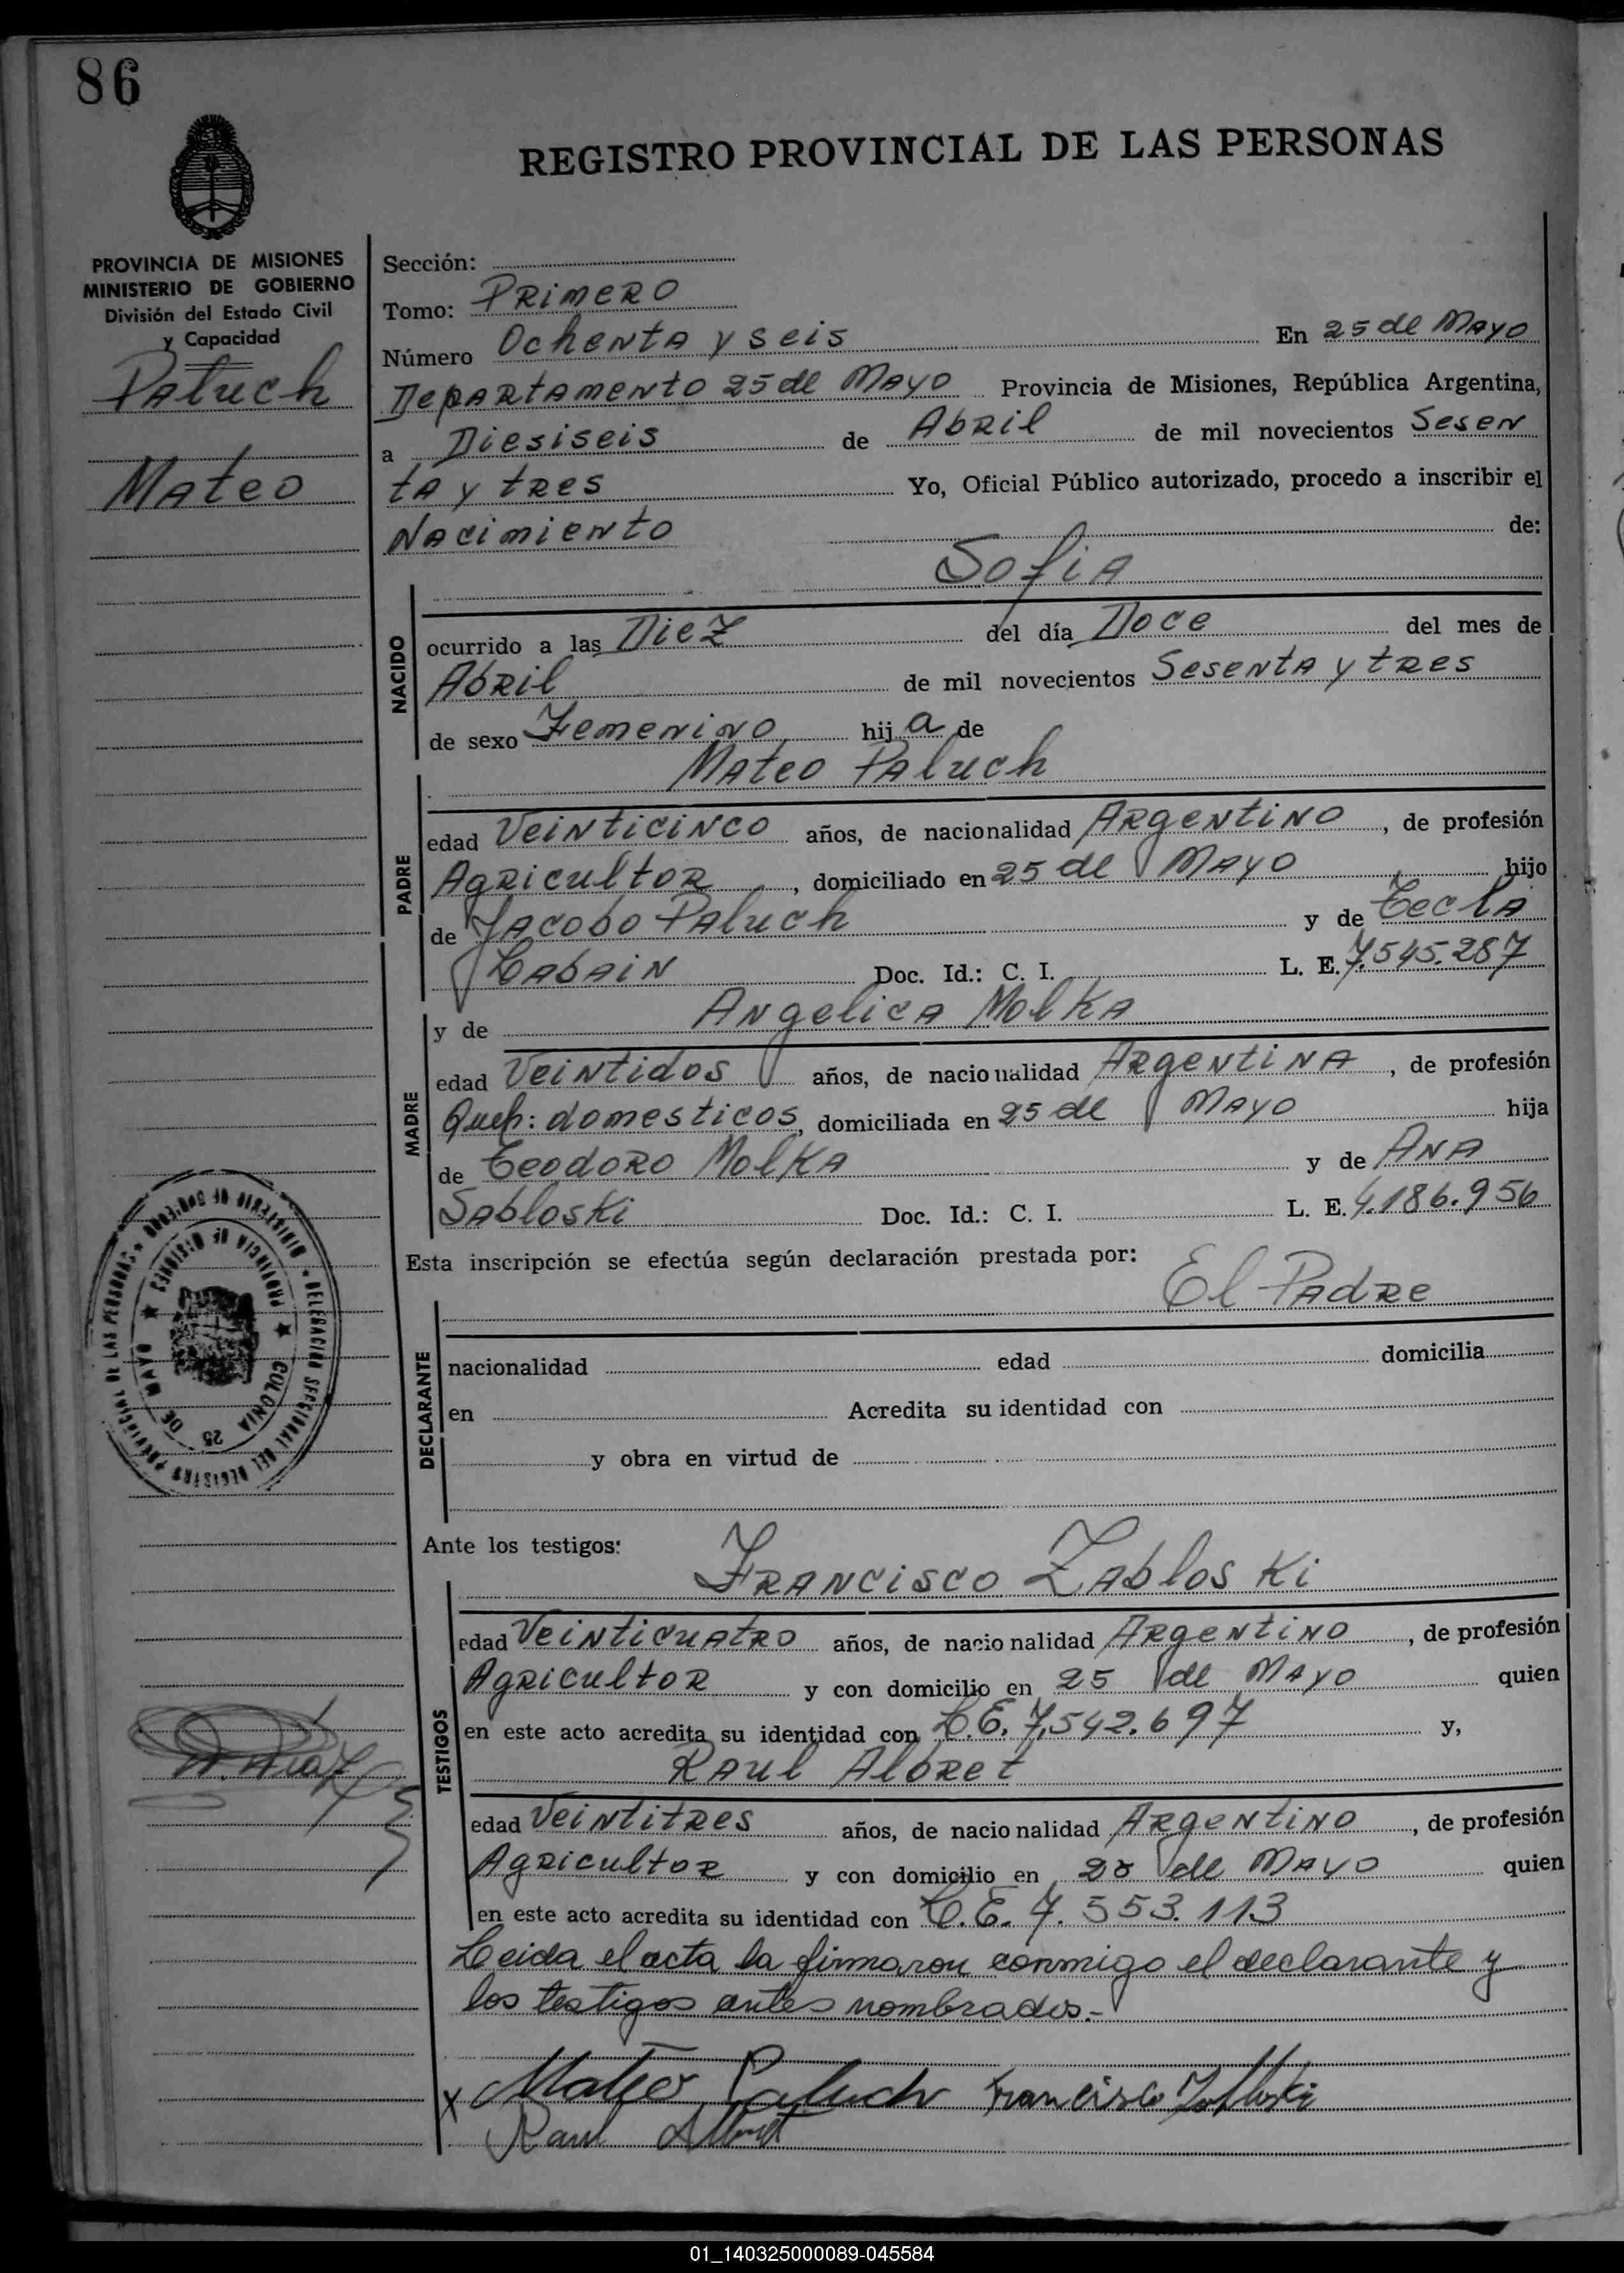 86
REGISTRO PROVINCIAL DE LAS PERSONAS
PROVINCIA DE MISIONES
MINISTERIO DE GOBIERNO
División del Estado Civil
y Capacidad
Paluch
Mateo
Sección:
Tomo: Primero
Número Ochenta y seis En 25 de Mayo
Departamento 25 de Mayo Provincia de Misiones, República Argentina,
a Diesiseis de Abril de mil novecientos Sesen
ta y tres Yo, Oficial Público autorizado, procedo a inscribir el
Nacimiento de:
Sofia
NACIDO
ocurrido a las Diez del día Doce del mes de
Abril de mil novecientos Sesenta y tres
de sexo Femenino hija de
Mateo Paluch
PADRE
edad Veinticinco años, de nacionalidad Argentino, de profesión
Agricultor, domiciliado en 25 de Mayo hijo
de Jacobo Paluch y de Tecla
Labain Doc. Id.: C. I. L. E. 7.545.287
y de Angelica Molka
MADRE
edad Veintidos años, de nacionalidad Argentina, de profesión
Queh: domesticos, domiciliada en 25 de Mayo hija
de Teodoro Molka y de Ana
Sabloski Doc. Id.: C. I. L. E. 4.186.956
Esta inscripción se efectúa según declaración prestada por:
El Padre
DECLARANTE
nacionalidad edad domicilia
en Acredita su identidad con
y obra en virtud de
DELEGACION SECCIONAL DEL REGISTRO PROVINCIAL DE LAS PERSONAS ★ MINISTERIO DE GOBIERNO ★
PROVINCIA DE MISIONES ★ COLONIA 25 DE MAYO ★
Ante los testigos:
Francisco Zabloski
TESTIGOS
edad Veinticuatro años, de nacionalidad Argentino, de profesión
Agricultor y con domicilio en 25 de Mayo quien
en este acto acredita su identidad con L.E. 7.542.697 y,
Raul Albret
edad Veintitres años, de nacionalidad Argentino, de profesión
Agricultor y con domicilio en 25 de Mayo quien
en este acto acredita su identidad con L.E. 7.553.113
Leida el acta la firmaron conmigo el declarante y
los testigos antes nombrados.-
x Mateo Paluch Francisco Zabloski
Raul Albret
01_140325000089-045584